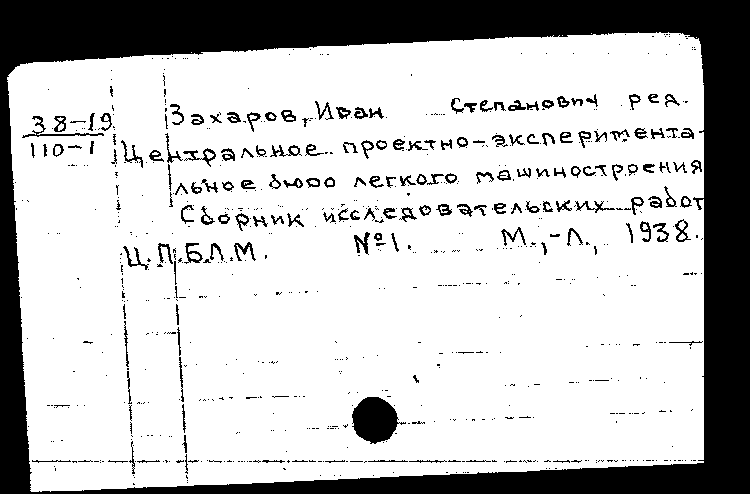 38-19 Захаров, Иван Степанович ред.
110-1 Центральное проектно-эксперимента-
льное бюро легкого машиностроения
Сборник исследовательских работ
Ц.П.Б.Л.М. №1. М.,-Л., 1938.